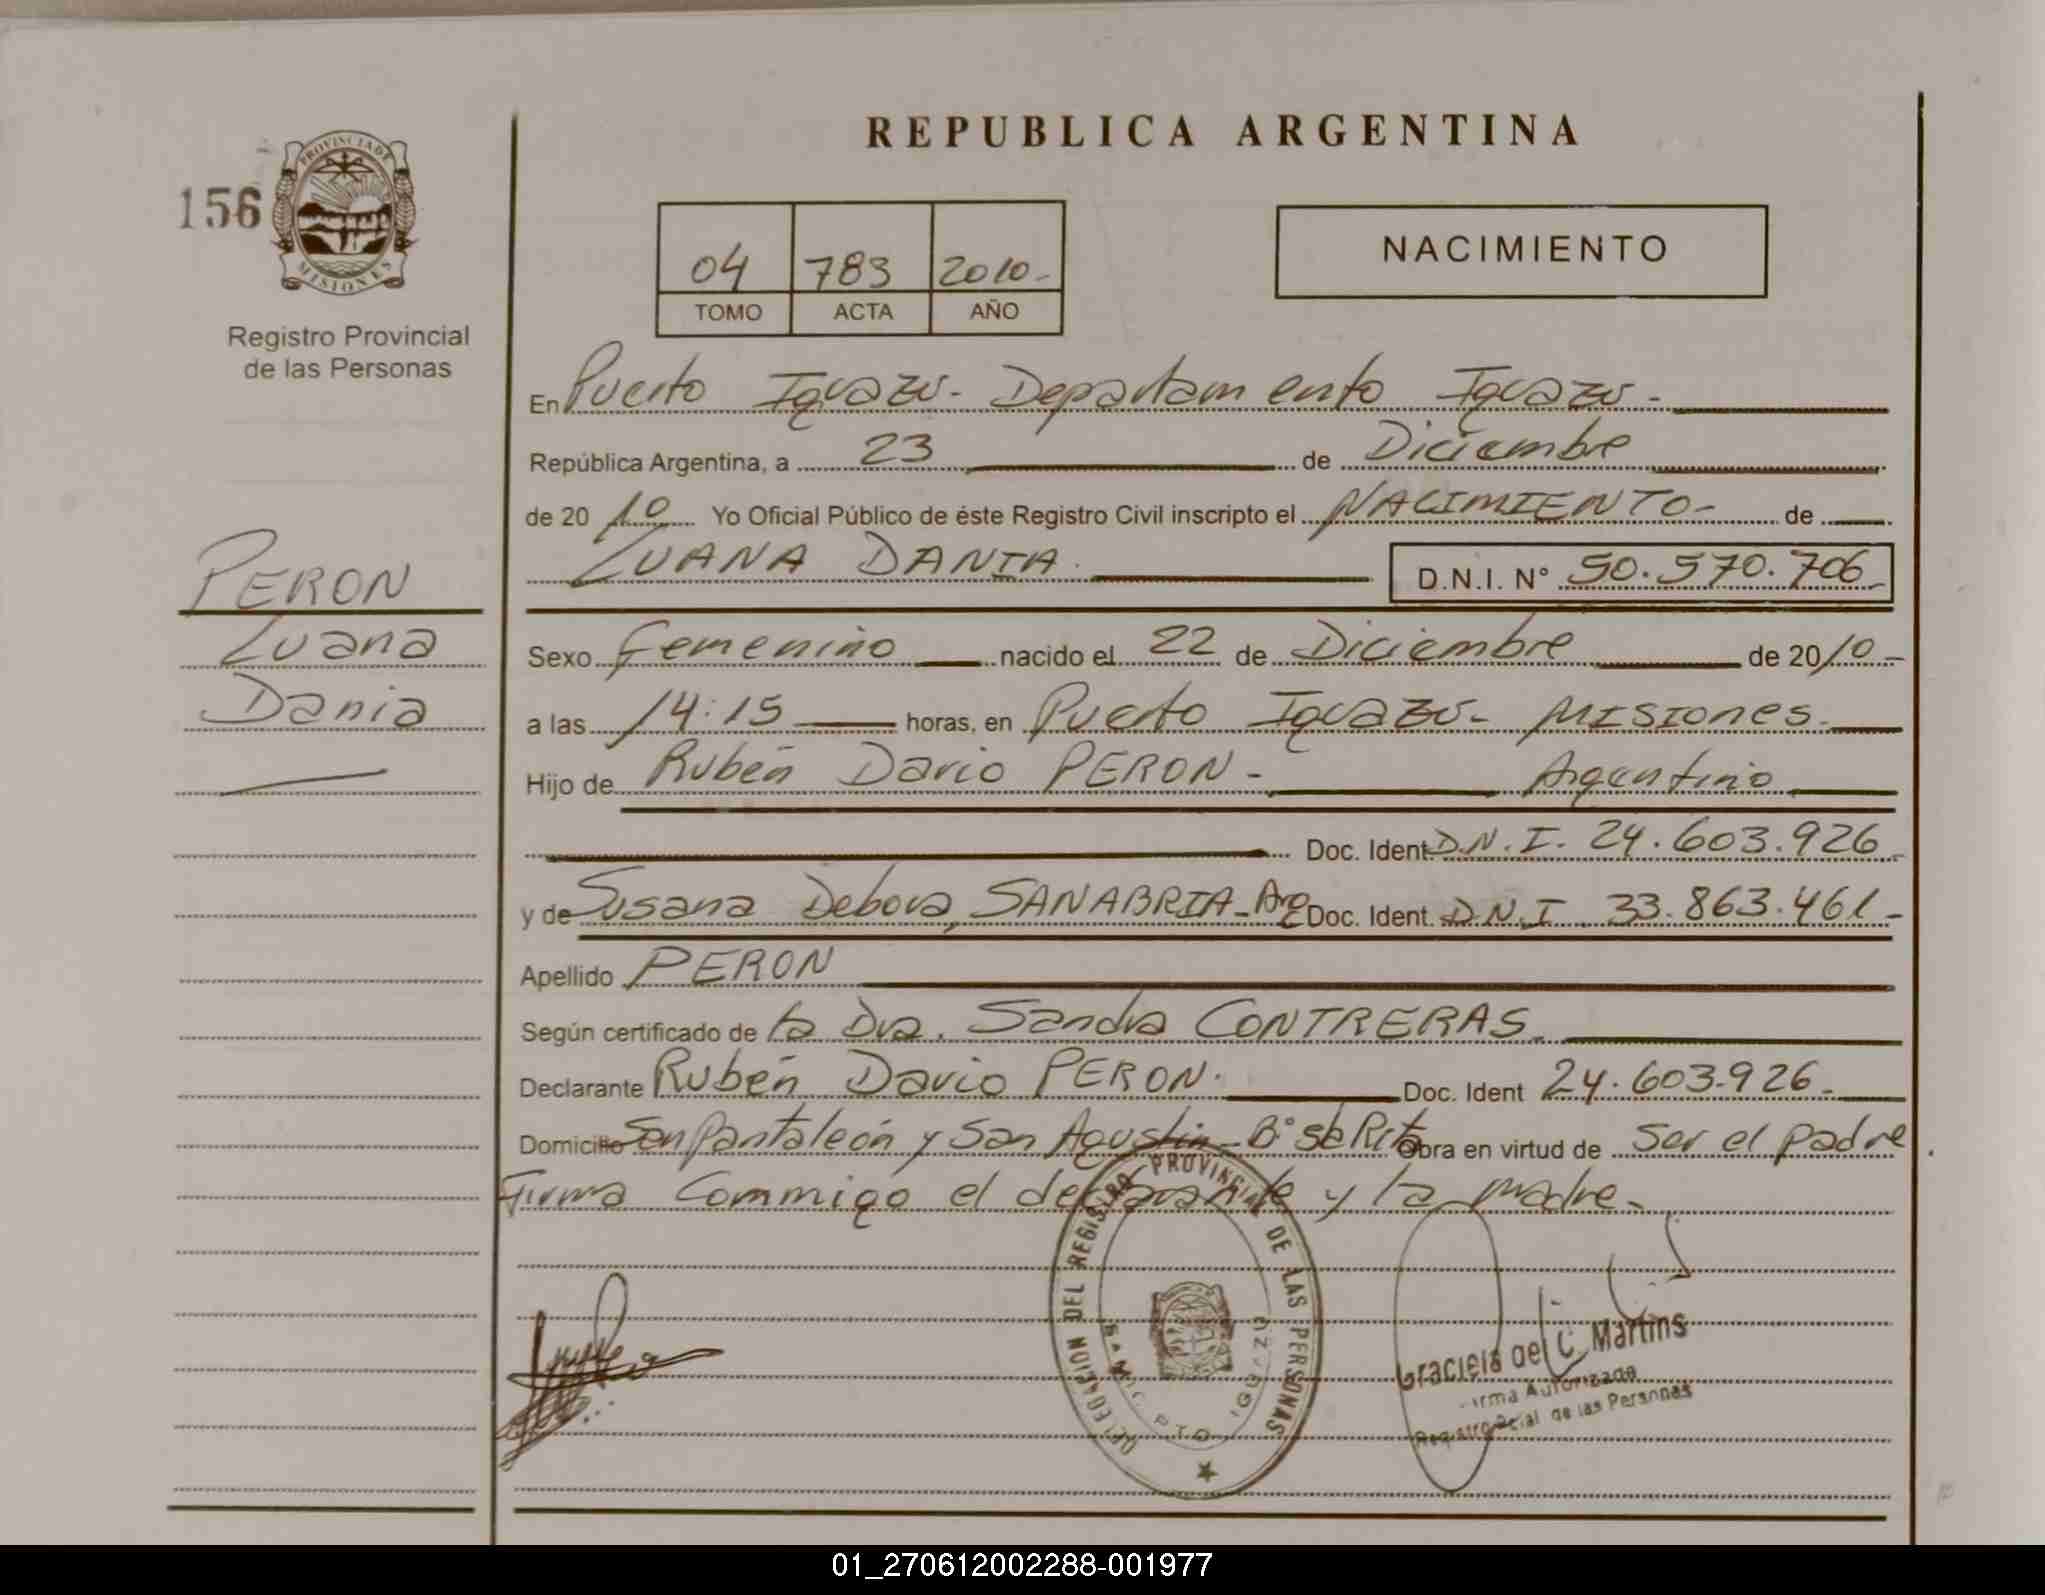 REPUBLICA ARGENTINA
156
PROVINCIA DE
MISIONES
Registro Provincial
de las Personas
04 783 2010-
TOMO ACTA AÑO
NACIMIENTO
En Puerto Iguazu- Departamento Iguazu-
República Argentina, a 23 de Diciembre
de 2010 Yo Oficial Público de éste Registro Civil inscripto el NACIMIENTO- de
LUANA DANIA. D.N.I. N° 50.570.706-
PERON
Luana
Dania
Sexo Femenino nacido el 22 de Diciembre de 2010-
a las 14:15 horas, en Puerto Iguazu- MISIONES-
Hijo de Rubén Dario PERON- Argentino
Doc. Ident. D.N.I. 24.603.926-
y de Susana Debora, SANABRIA-Arg Doc. Ident. D.N.I. 33.863.461-
Apellido PERON
Según certificado de la Dra. Sandra CONTRERAS-
Declarante Rubén Dario PERON. Doc. Ident 24.603.926-
Domicilio San Pantaleón y San Agustin-B° Sta Rita Obra en virtud de ser el padre.
Firma Commigo el declarante y la madre-
DELEGACION DEL REGISTRO PROVINCIAL DE LAS PERSONAS
SAMIC. PTO. IGUAZU
Graciela del C. Martins
Firma Autorizada
Registro Pcial de las Personas
01_270612002288-001977